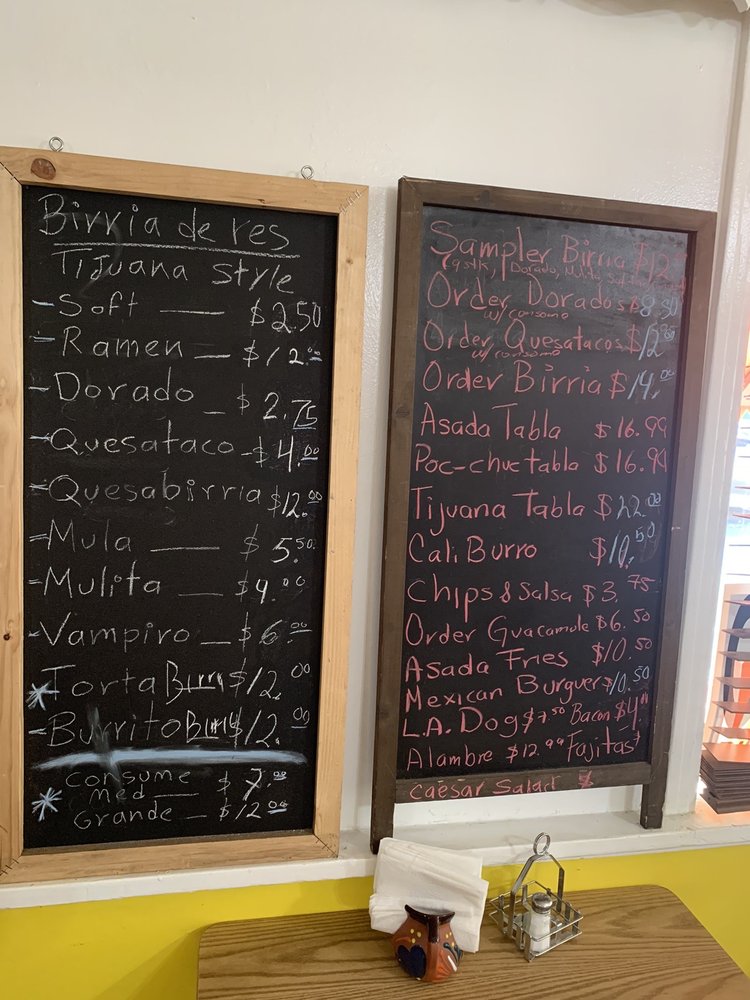 Birria de res
Tijuana Style
- Soft — $2.50
- Ramen — $12.00
- Dorado — $2.75
- Quesataco - $4.00
- Quesabirria $12.00
- Mula — $5.50
- Mulita — $4.00
- Vampiro — $6.00
* Torta Birri $12.00
- Burrito Birri $12.00
Consume
* Med — $7.00
Grande — $12.00
Sampler Birria $12
Dorado, Mulita
Order Dorados $8.50
w/ consomo
Order Quesatacos $12.00
w/ consomo
Order Birria $14.00
Asada Tabla $16.99
Poc-chuc tabla $16.99
Tijuana Tabla $22.00
Cali Burro $10.50
Chips & Salsa $3.75
Order Guacamole $6.50
Asada Fries $10.50
Mexican Burguer $10.50
L.A. Dog $7.50 Bacon $4
Alambre $12.99 Fajitas
Caesar Salad